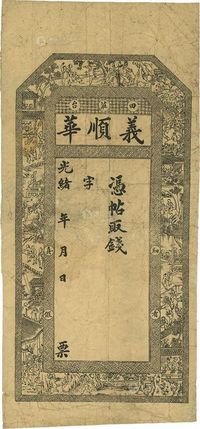 義順華
憑帖取錢
字
光緒 年 月 日
票